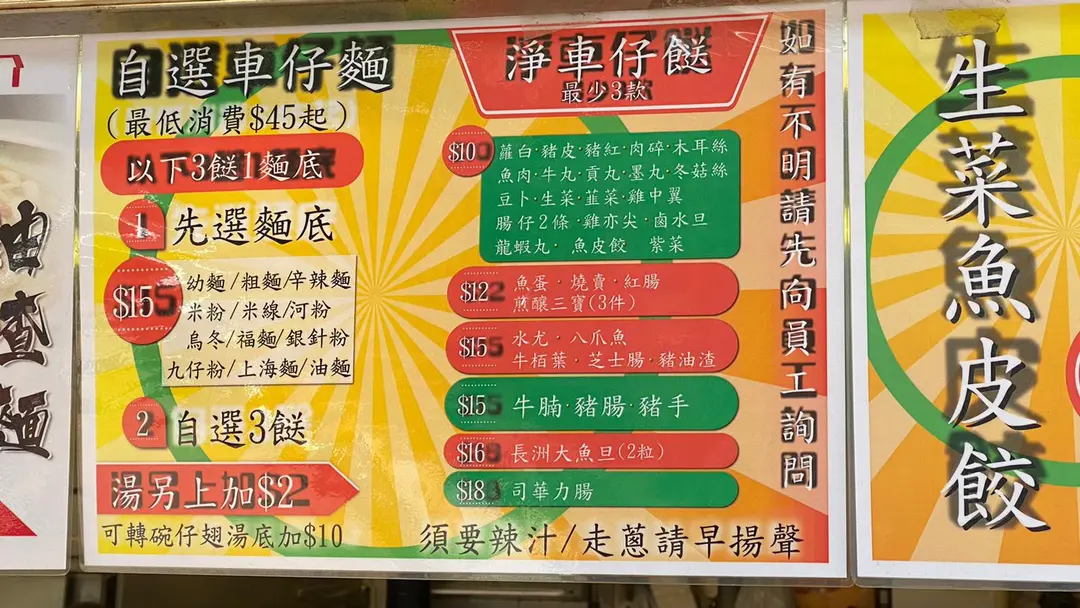 油渣麵
自選車仔麵
(最低消費$45起)
以下3餸1麵底
1 先選麵底
$15
幼麵/粗麵/辛辣麵
米粉/米線/河粉
烏冬/福麵/銀針粉
九仔粉/上海麵/油麵
2 自選3餸
湯另上加$2
可轉碗仔翅湯底加$10
淨車仔餸
最少3款
$10
蘿白·豬皮·豬紅·肉碎·木耳絲
魚肉·牛丸·貢丸·墨丸·冬菇絲
豆卜·生菜·韮菜·雞中翼
腸仔2條·雞亦尖·鹵水旦
龍蝦丸·魚皮餃 紫菜
$12
魚蛋·燒賣·紅腸
煎釀三寶(3件)
$15
水尤·八爪魚
牛栢葉·芝士腸·豬油渣
$15 牛腩·豬腸·豬手
$16 長洲大魚旦(2粒)
$18 司華力腸
須要辣汁/走蔥請早揚聲
如有不明請先向員工詢問
生菜魚皮餃